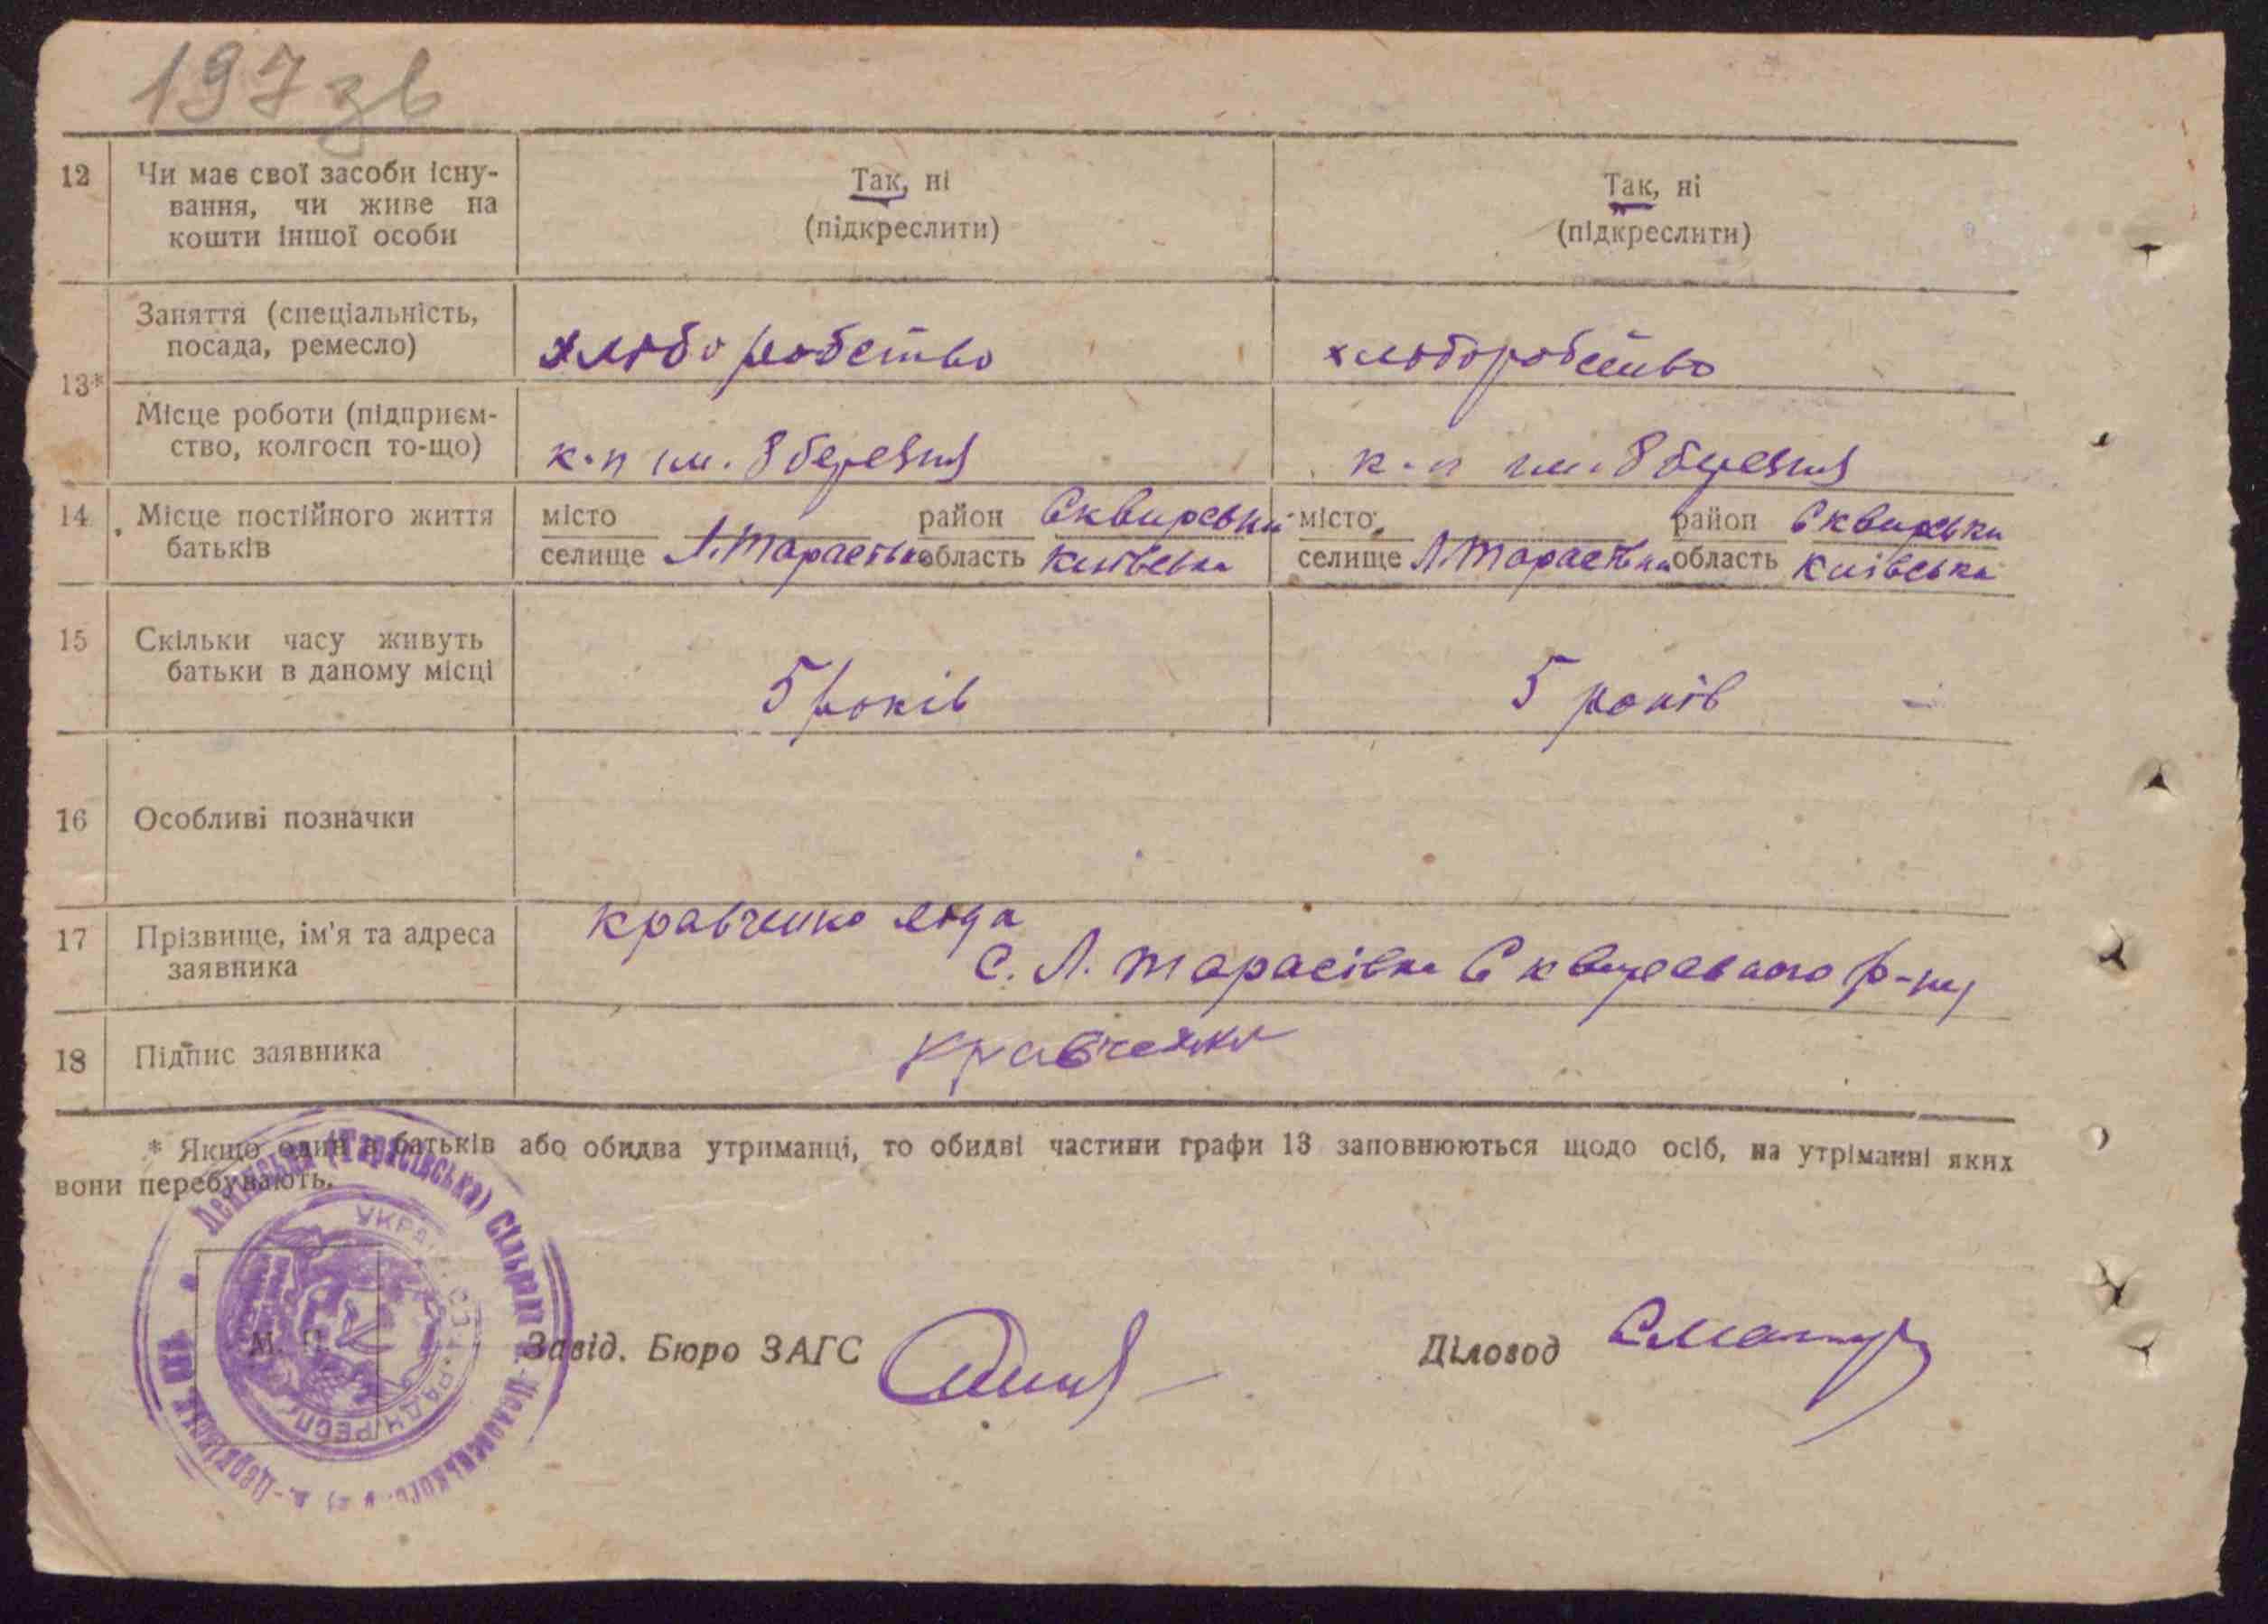 197 зв
12 Чи має свої засоби існу-
вання, чи живе на
кошти іншої особи
Так, ні
(підкреслити)
Так, ні
(підкреслити)
13*
Заняття (спеціальність,
посада, ремесло)
хліборобство
хліборобство
Місце роботи (підприєм-
ство, колгосп то-що)
к-п ім. 8 березня
к-п ім. 8 березня
14 Місце постійного життя
батьків
місто район Сквирський
селище Л. Тарасівка область Київська
місто район Сквирськи
селище Л. Тарасівка область Київська
15 Скільки часу живуть
батьки в даному місці
5 років
5 років
16 Особливі позначки
17 Прізвище, ім'я та адреса
заявника
Кравченко
с. Л. Тарасівка Сквирського р-ну
18 Підпис заявника
Кравченко
* Якщо один з батьків або обидва утриманці, то обидві частини графи 13 заповнюються щодо осіб, на утріманні яких
вони перебувають.
Ленінська (Тарасівська) сільрада
УКР. СОЦ. РАД. РЕСП.
М. П.
Завід. Бюро ЗАГС
Діловод